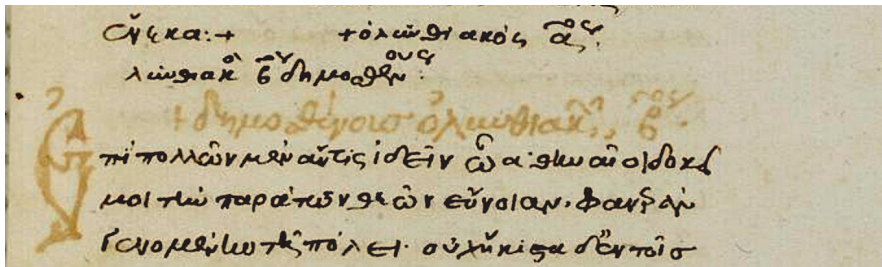 εἵνεκα:+ +ὀλυνθιακὸς αος:
λυνθιακὸ β δημοσθένους:
+δημοσθένους ὀλυνθιακὸς βος.
Ἐπὶ πολλῶν μὲν ἄν τις ἰδεῖν ὦ ἀ: θηναῖοι δοκεῖ
μοι τὴν παρὰ τῶν θεῶν εὔνοιαν, φανερὰν
γενομένην τῆ πόλει. οὐχ ἥκιστα δ' ἐν τοῖς